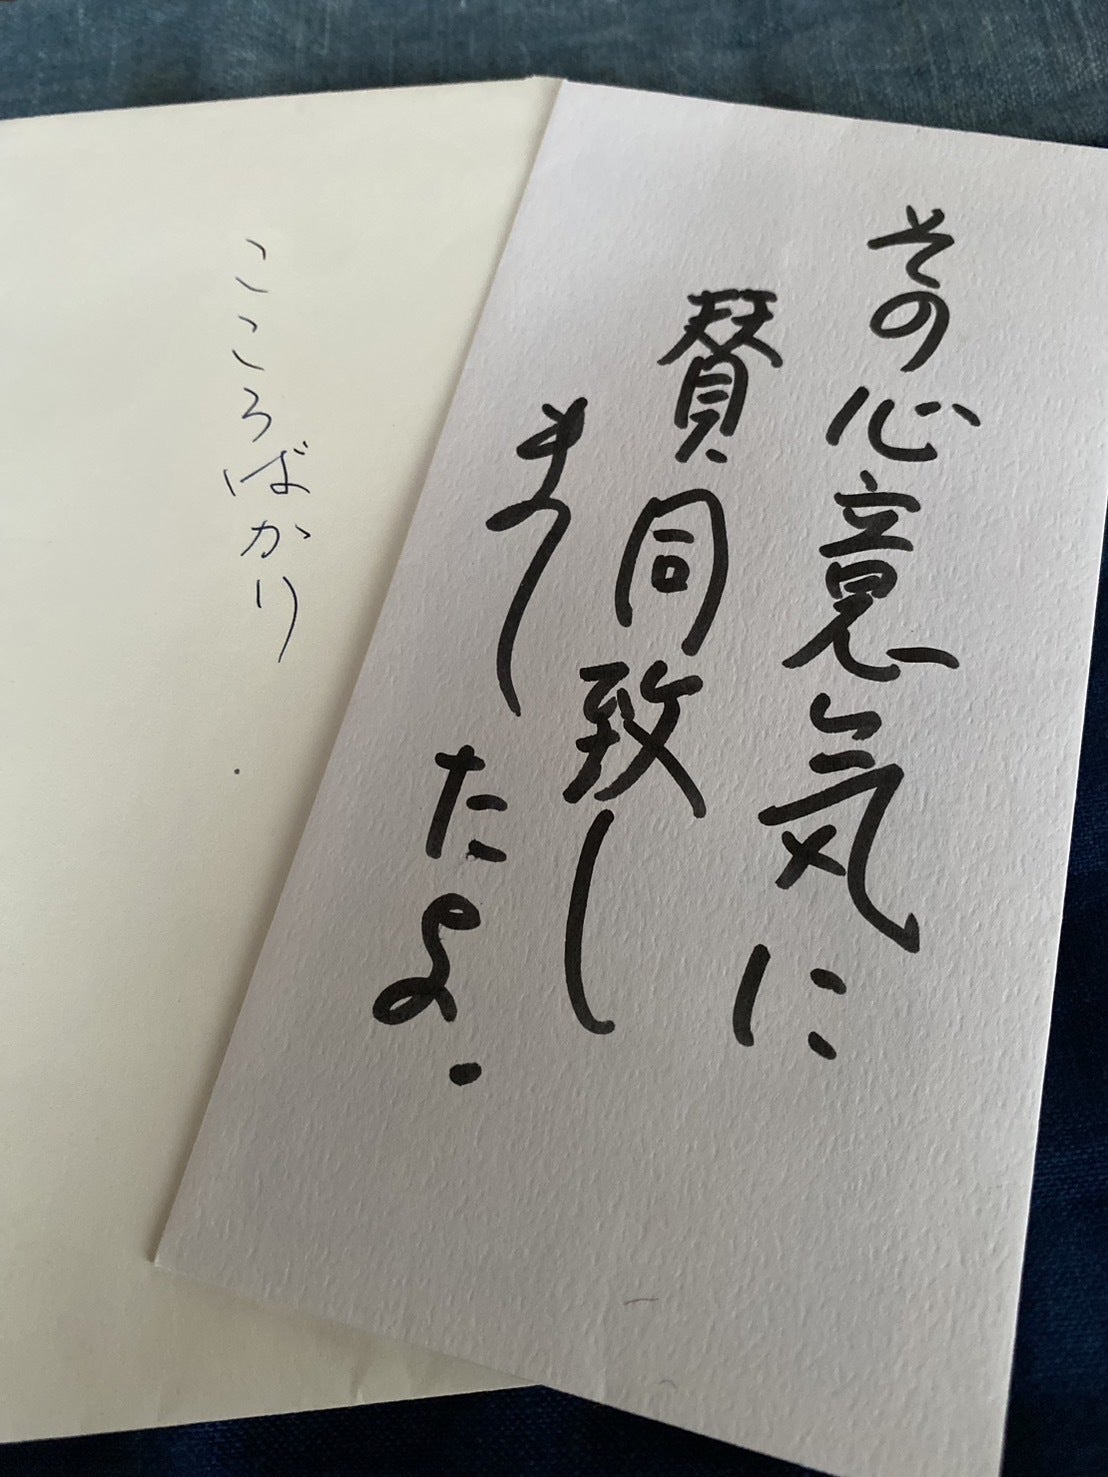 その心意気に
賛同致し
ましたよ.
こころばかり